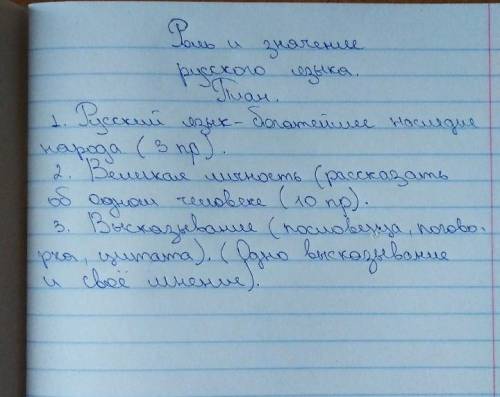 Роль и значение
русского языка.
План.
1. Русский язык - богатейшее наследие
народа (3 пр).
2. Великая личность (рассказать
об одном человеке (10 пр).
3. Высказывание (пословица, погово-
рка, цитата). (Одно высказывание
и своё мнение).